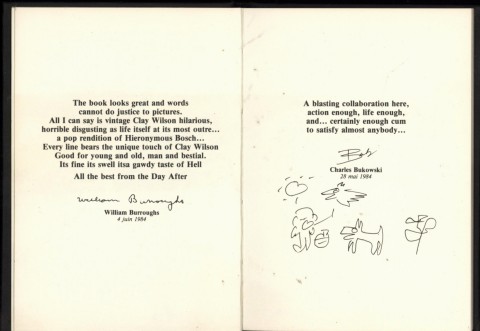 The book looks great and words
cannot do justice to pictures.
All I can say is vintage Clay Wilson hilarious,
horrible disgusting as life itself at its most outre...
a pop rendition of Hieronymous Bosch...
Every line bears the unique touch of Clay Wilson
Good for young and old, man and bestial.
Its fine its swell itsa gawdy taste of Hell
All the best from the Day After
William Burroughs
William Burroughs
4 juin 1984
A blasting collaboration here,
action enough, life enough,
and... certainly enough cum
to satisfy almost anybody...
Charles Bukowski
28 mai 1984